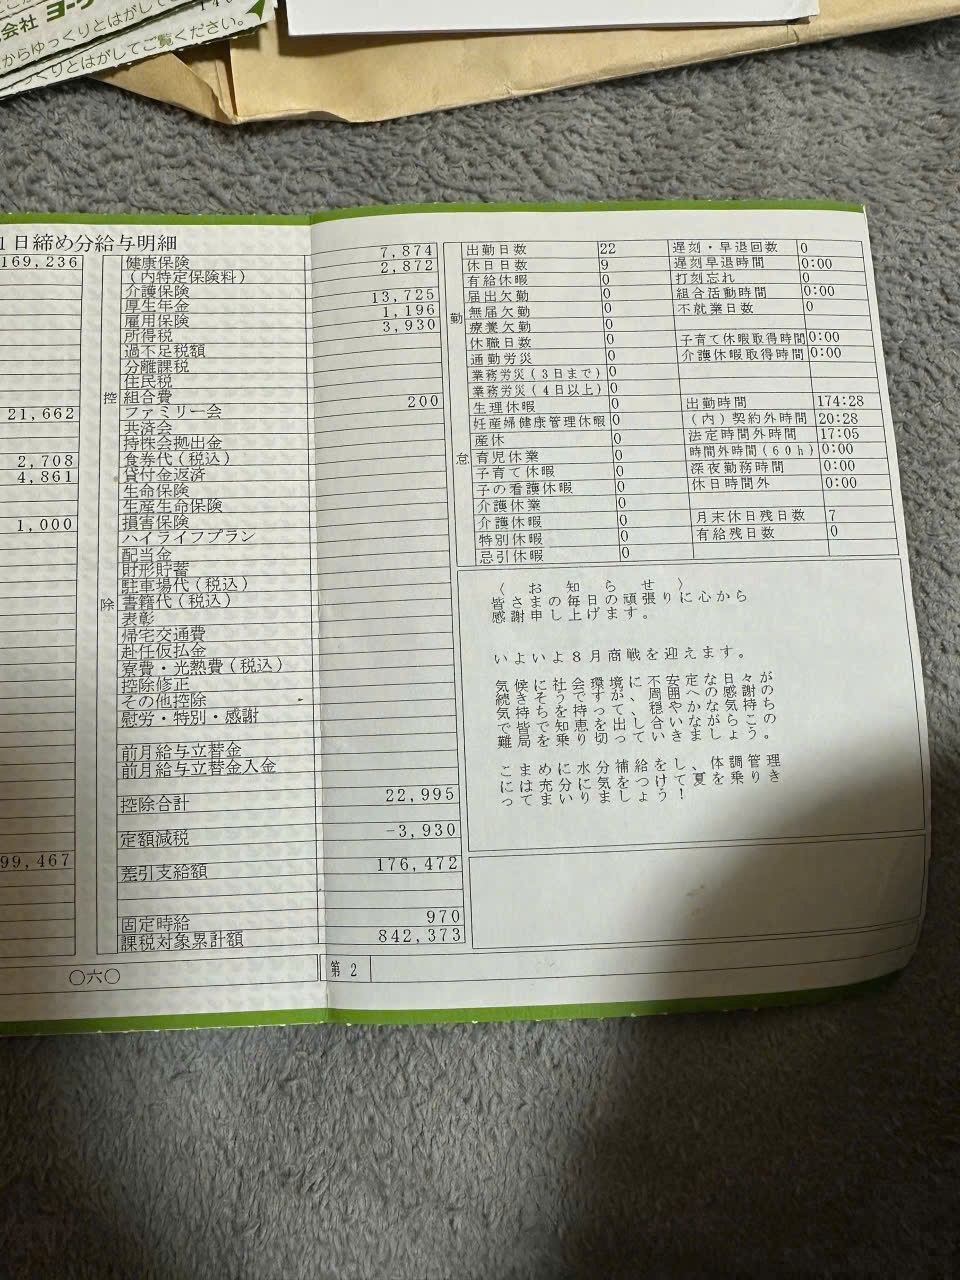 会社 ヨーク
からゆっくりとはがしてご覧ください。
っくりとはがしてご覧ください。
1日締め分給与明細
169,236
21,662
2,708
4,861
1,000
99,467
控
除
健康保険 7,874
(内特定保険料) 2,872
介護保険
厚生年金 13,725
雇用保険 1,196
所得税 3,930
過不足税額
分離課税
住民税
組合費
ファミリー会 200
共済会
持株会拠出金
食券代(税込)
貸付金返済
生命保険
生産生命保険
損害保険
ハイライフプラン
配当金
財形貯蓄
駐車場代(税込)
書籍代(税込)
表彰
帰宅交通費
赴任仮払金
寮費・光熱費(税込)
控除修正
その他控除
慰労・特別・感謝
前月給与立替金
前月給与立替金入金
控除合計 22,995
定額減税 -3,930
差引支給額 176,472
固定時給 970
課税対象累計額 842,373
〇六〇
第 2
勤
怠
出勤日数 22 遅刻・早退回数 0
休日日数 9 遅刻早退時間 0:00
有給休暇 0 打刻忘れ 0
届出欠勤 0 組合活動時間 0:00
無届欠勤 0 不就業日数 0
療養欠勤 0
休職日数 0 子育て休暇取得時間 0:00
通勤労災 0 介護休暇取得時間 0:00
業務労災(3日まで) 0
業務労災(4日以上) 0
生理休暇 0 出勤時間 174:28
妊産婦健康管理休暇 0 (内)契約外時間 20:28
産休 0 法定時間外時間 17:05
育児休業 0 時間外時間(60h) 0:00
子育て休暇 0 深夜勤務時間 0:00
子の看護休暇 0 休日時間外 0:00
介護休業 0
介護休暇 0 月末休日残日数 7
特別休暇 0 有給残日数 0
忌引休暇 0
〈 お 知 ら せ 〉
皆さまの毎日の頑張りに心から
感謝申し上げます。
いよいよ8月商戦を迎えます。
気候に社会環境に不安定な日々が
続きそうですが、周囲への感謝の
気持ちを持って、穏やかな気持ち
で皆で知恵を出し合いながらこの
難局を乗り切っていきましょう。
こまめに水分補給をし、体調管理
には充分に気をつけて夏を乗りき
ってまいりましょう!